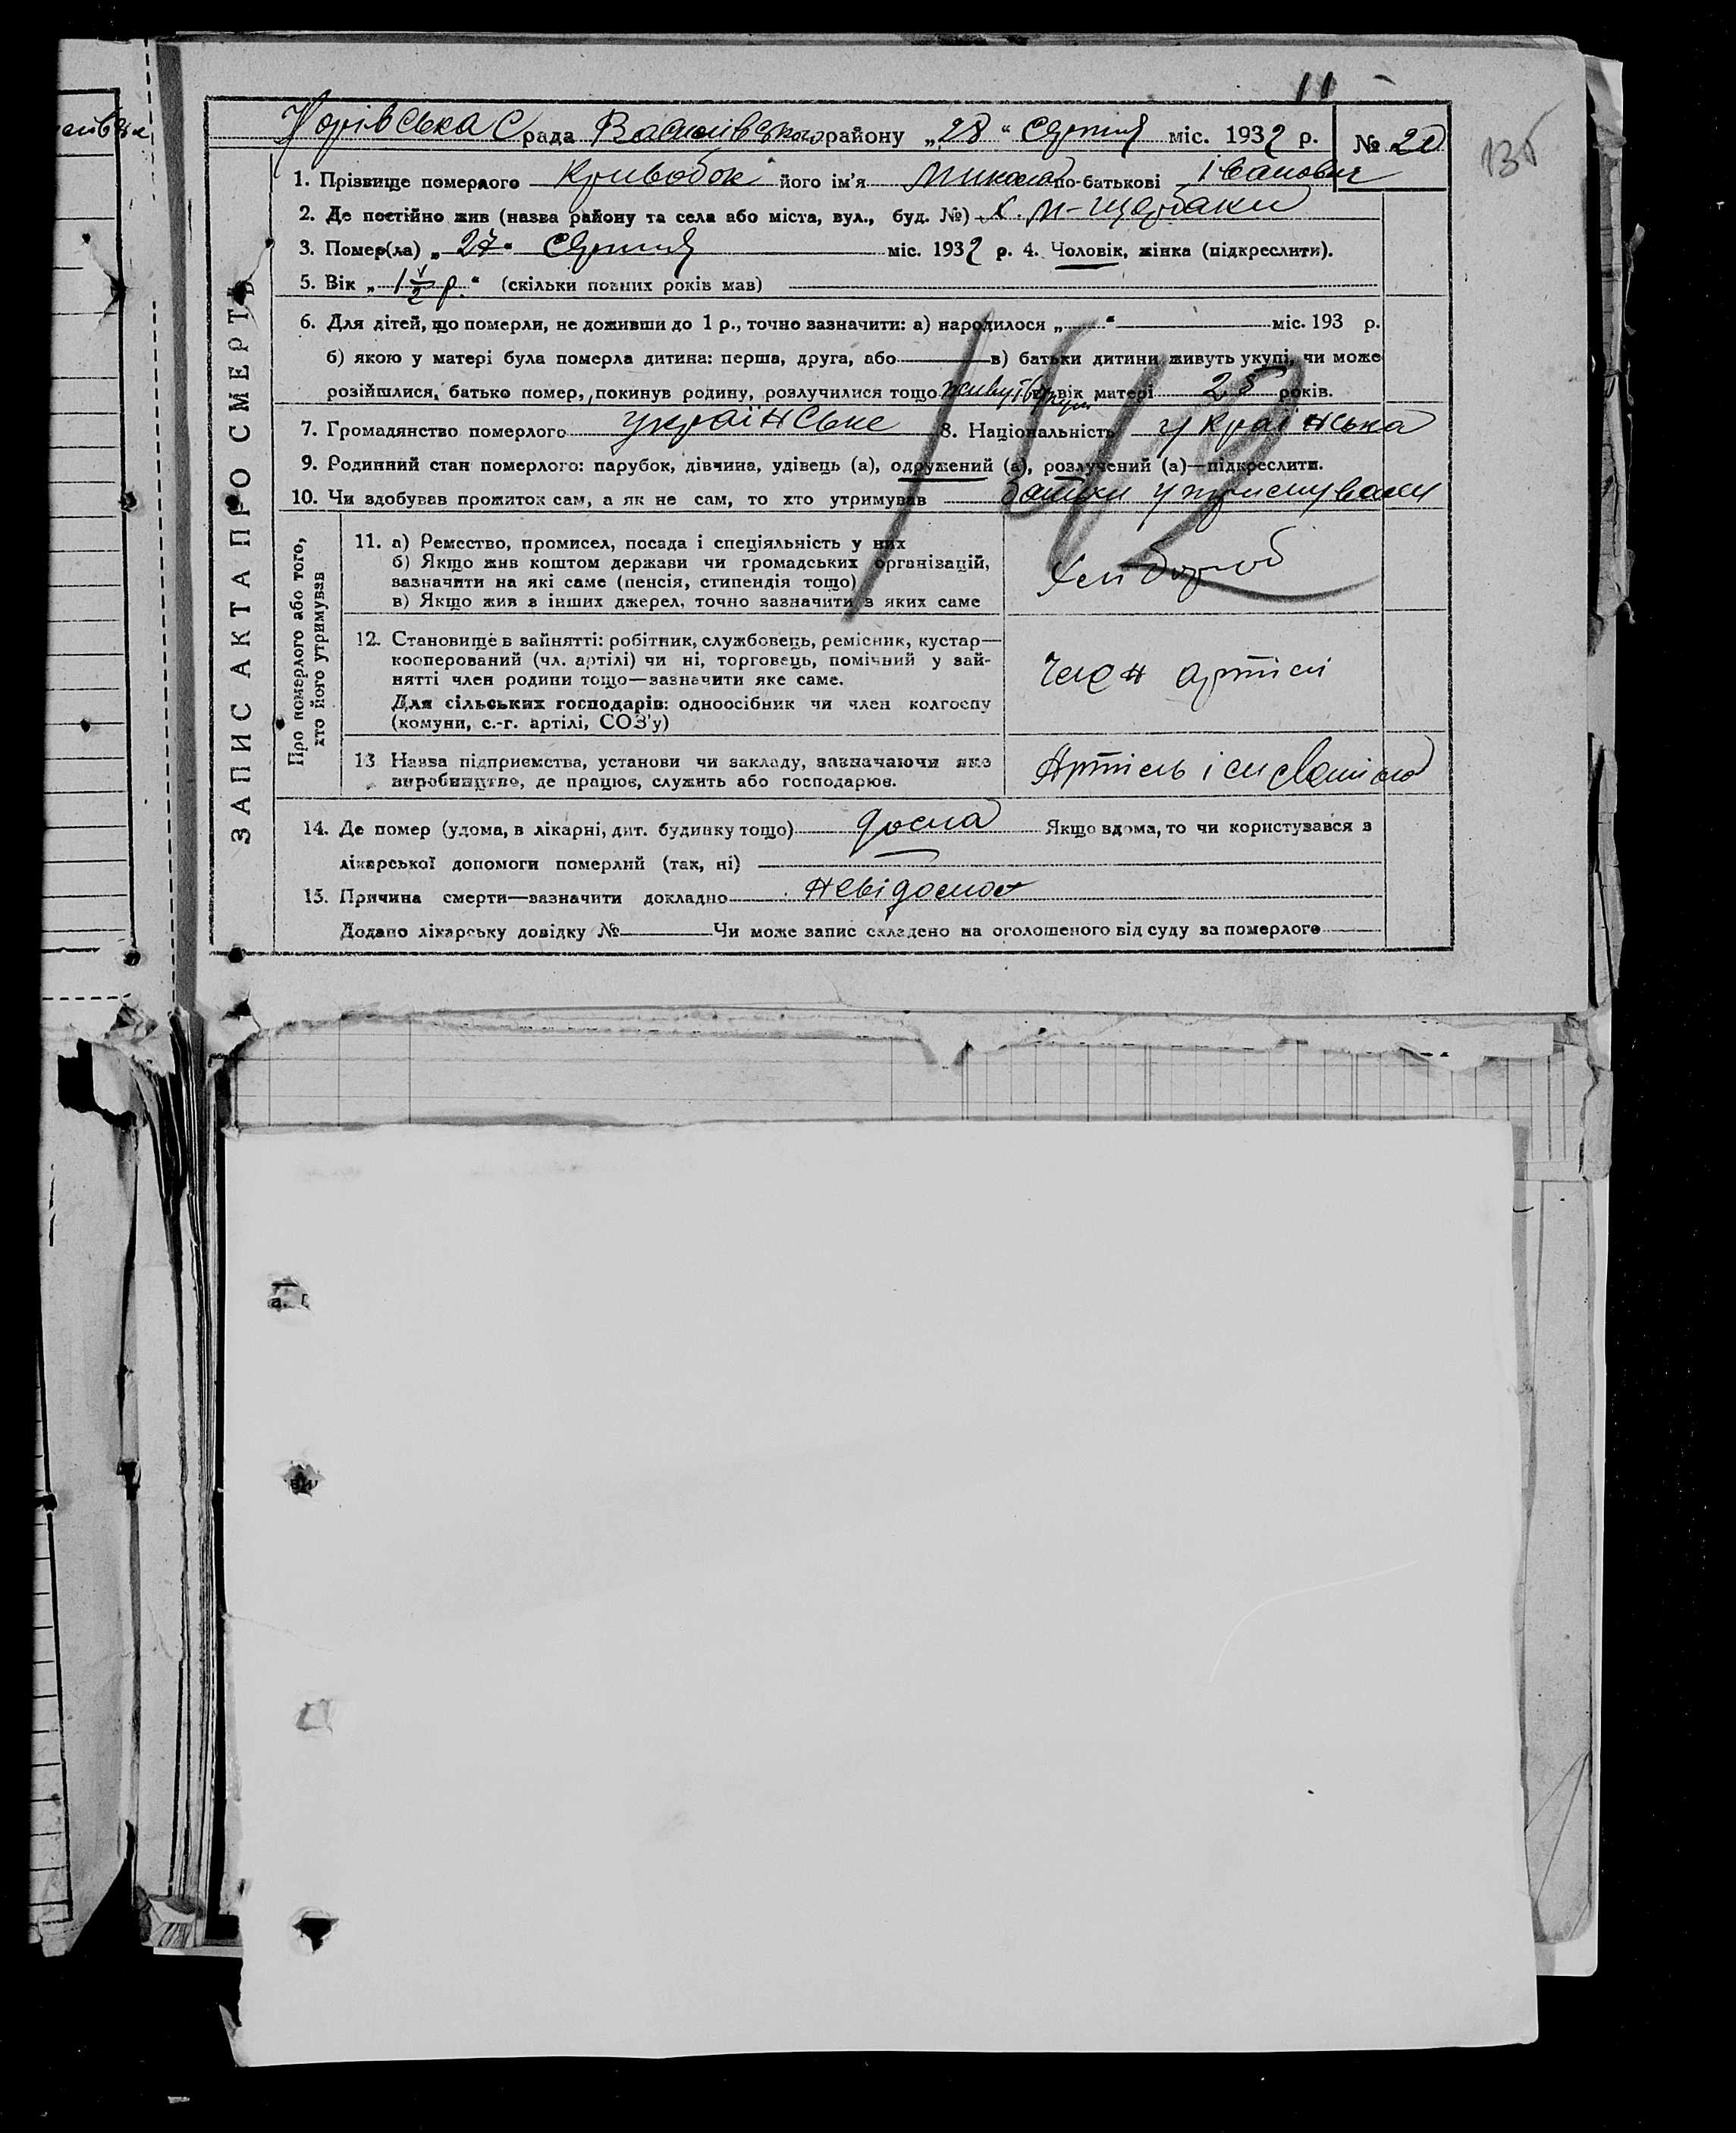 11
Юрівська С рада Василівського району „28“ Серпня міс. 1932 р. № 20
135
1. Прізвище померлого Кривобок його ім'я Микола по-батькові Іванович
2. Де постійно жив (назва району та села або міста, вул., буд. №) х. М-Щербаки
3. Помер(ла) „27“ Серпня міс. 1932 р. 4. Чоловік, жінка (підкреслити).
5. Вік „1 1/2 р.“ (скільки повних років мав)
6. Для дітей, що померли, не доживши до 1 р., точно зазначити: а) народилося „ “ міс. 193 р.
б) якою у матері була померла дитина: перша, друга, або в) батьки дитини живуть укупі, чи може
розійшлися, батько помер, покинув родину, розлучилися тощо живуть вкупі вік матері 25 років.
7. Громадянство померлого українське 8. Національність українська
9. Родинний стан померлого: парубок, дівчина, удівець (а), одружений (а), розлучений (а)—підкреслити.
10. Чи здобував прожиток сам, а як не сам, то хто утримував батьки утримували
ЗАПИС АКТА ПРО СМЕРТЬ
Про померлого або того,
хто його утримував
11. а) Ремество, промисел, посада і спеціяльність у них
б) Якщо жив коштом держави чи громадських організацій,
зазначити на які саме (пенсія, стипендія тощо)
в) Якщо жив з інших джерел, точно зазначити з яких саме
Хлібороб
12. Становище в зайнятті: робітник, службовець, ремісник, кустар—
кооперований (чл. артілі) чи ні, торговець, помічний у зай-
нятті член родини тощо—зазначити яке саме.
Для сільських господарів: одноосібник чи член колгоспу
(комуни, с.-г. артілі, СОЗ'у)
Член артілі
13 Назва підприємства, установи чи закладу, зазначаючи яке
виробництво, де працює, служить або господарює.
Артіль
14. Де помер (удома, в лікарні, дит. будинку тощо) дома Якщо вдома, то чи користувався з
лікарської допомоги померлий (так, ні)
15. Причина смерти—зазначити докладно невідома
Додано лікарську довідку № Чи може запис складено на оголошеного від суду за померлого